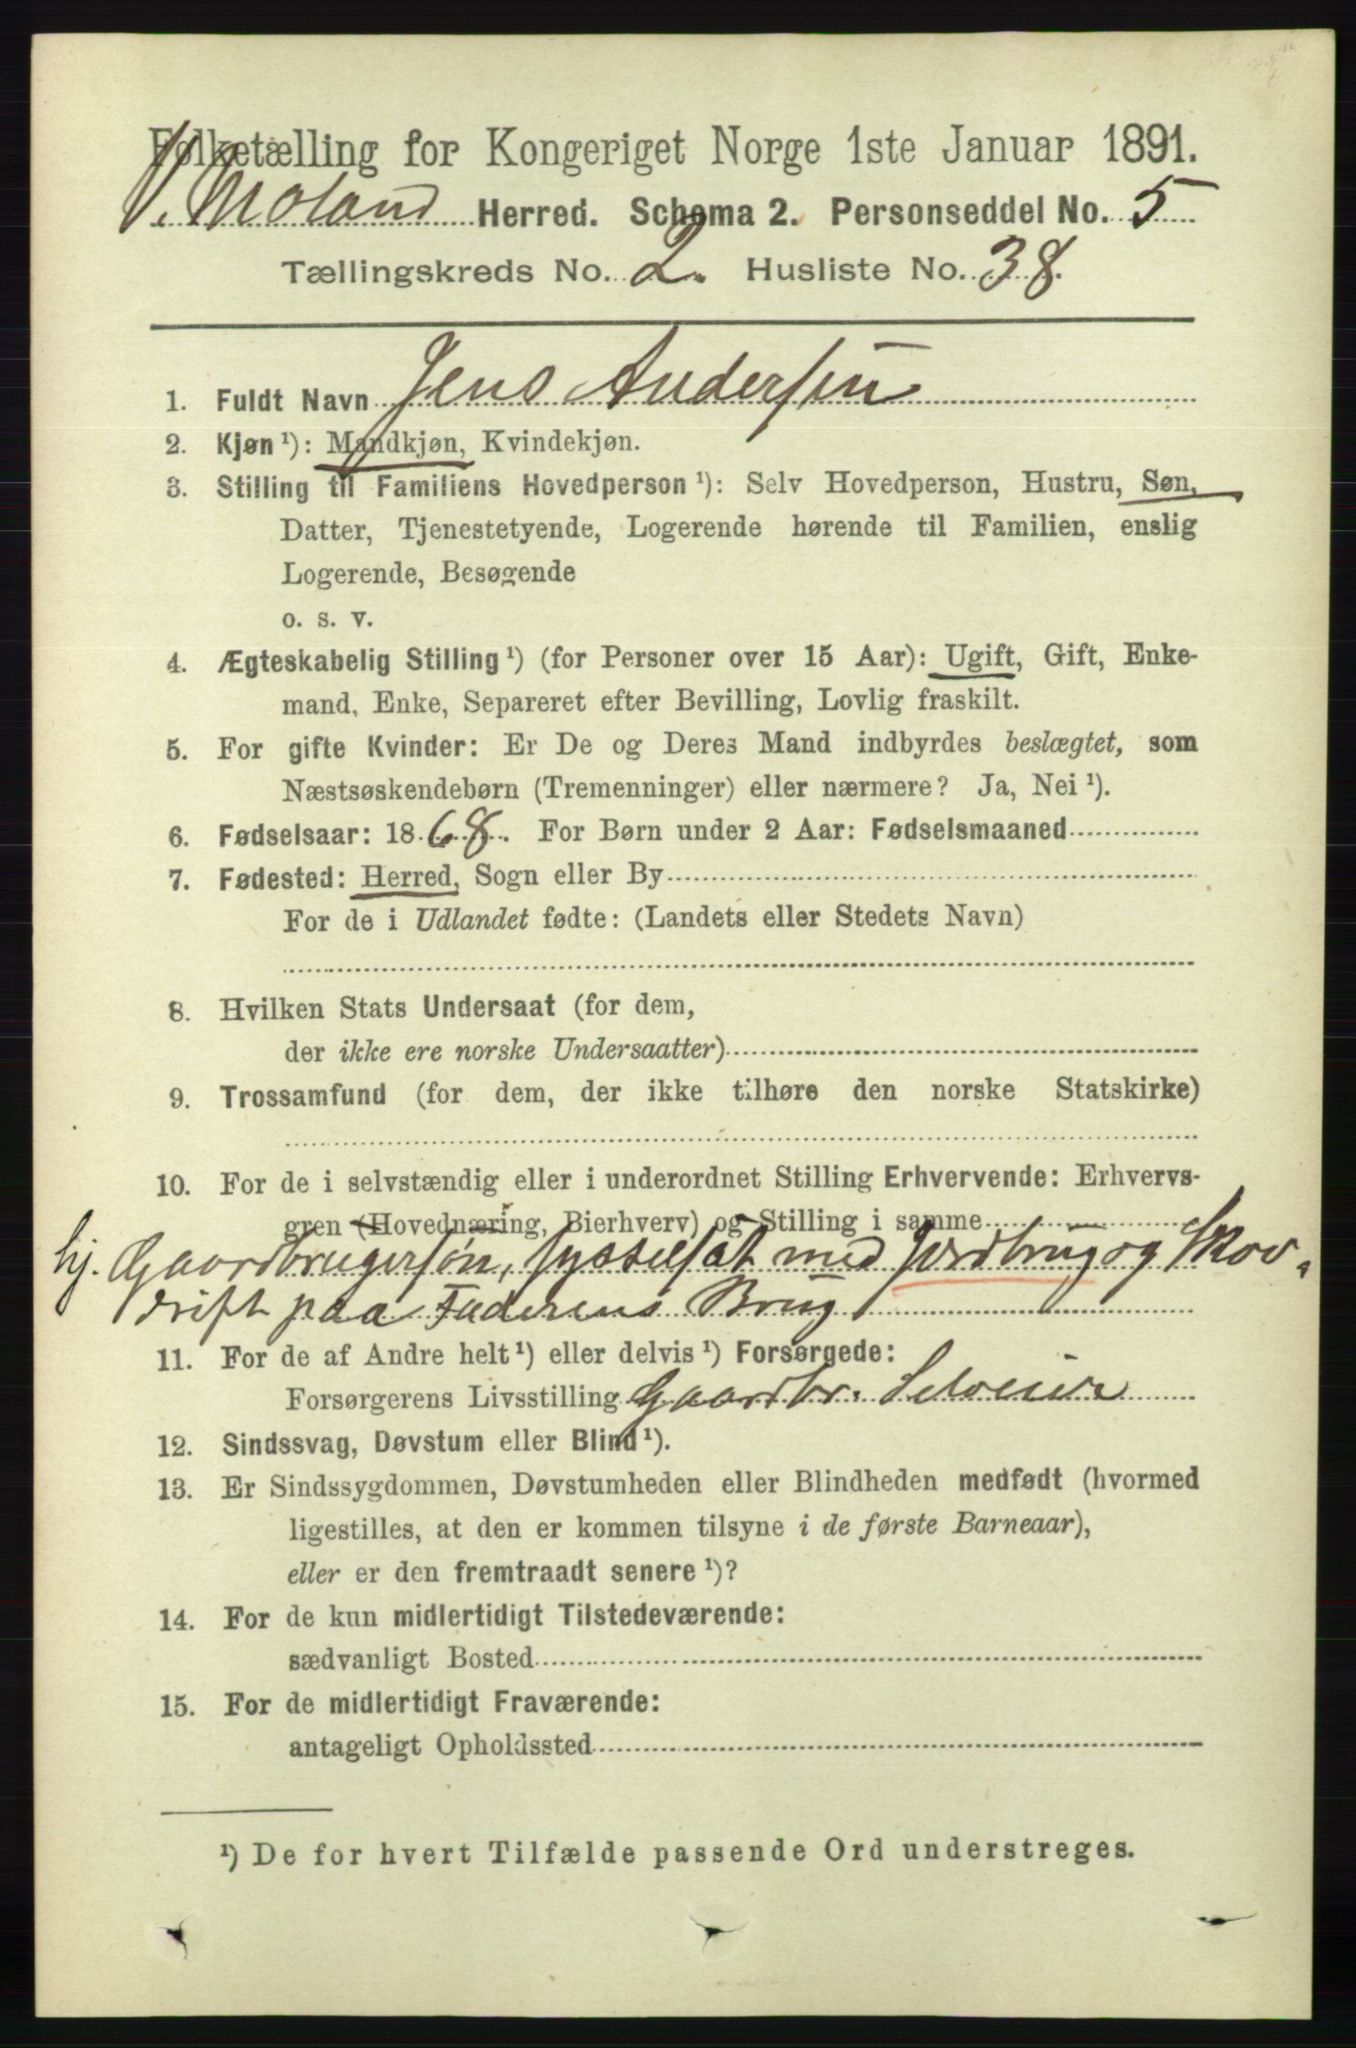 Folketælling for Kongeriget Norge 1ste Januar 1891.
V. Moland Herred. Schema 2. Personseddel No. 5
Tællingskreds No. 2. Husliste No. 38.
1. Fuldt Navn Jens Andersen
2. Kjøn ¹): Mandkjøn, Kvindekjøn.
3. Stilling til Familiens Hovedperson ¹): Selv Hovedperson, Hustru, Søn,
Datter, Tjenestetyende, Logerende hørende til Familien, enslig
Logerende, Besøgende
o. s. v.
4. Ægteskabelig Stilling ¹) (for Personer over 15 Aar): Ugift, Gift, Enke-
mand, Enke, Separeret efter Bevilling, Lovlig fraskilt.
5. For gifte Kvinder: Er De og Deres Mand indbyrdes beslægtet, som
Næstsøskendebørn (Tremenninger) eller nærmere? Ja, Nei ¹).
6. Fødselsaar: 1868. For Børn under 2 Aar: Fødselsmaaned
7. Fødested: Herred, Sogn eller By
For de i Udlandet fødte: (Landets eller Stedets Navn)
8. Hvilken Stats Undersaat (for dem,
der ikke ere norske Undersaatter)
9. Trossamfund (for dem, der ikke tilhøre den norske Statskirke)
10. For de i selvstændig eller i underordnet Stilling Erhvervende: Erhvervs-
gren (Hovednæring, Bierhverv) og Stilling i samme
hj. Gaardbrugersøn, sysselsat med Jordbrug og Skov-
drift paa Faderens Brug
11. For de af Andre helt ¹) eller delvis ¹) Forsørgede:
Forsørgerens Livsstilling Gaardbr. Selveier
12. Sindssvag, Døvstum eller Blind ¹).
13. Er Sindssygdommen, Døvstumheden eller Blindheden medfødt (hvormed
ligestilles, at den er kommen tilsyne i de første Barneaar),
eller er den fremtraadt senere ¹)?
14. For de kun midlertidigt Tilstedeværende:
sædvanligt Bosted
15. For de midlertidigt Fraværende:
antageligt Opholdssted
¹) De for hvert Tilfælde passende Ord understreges.